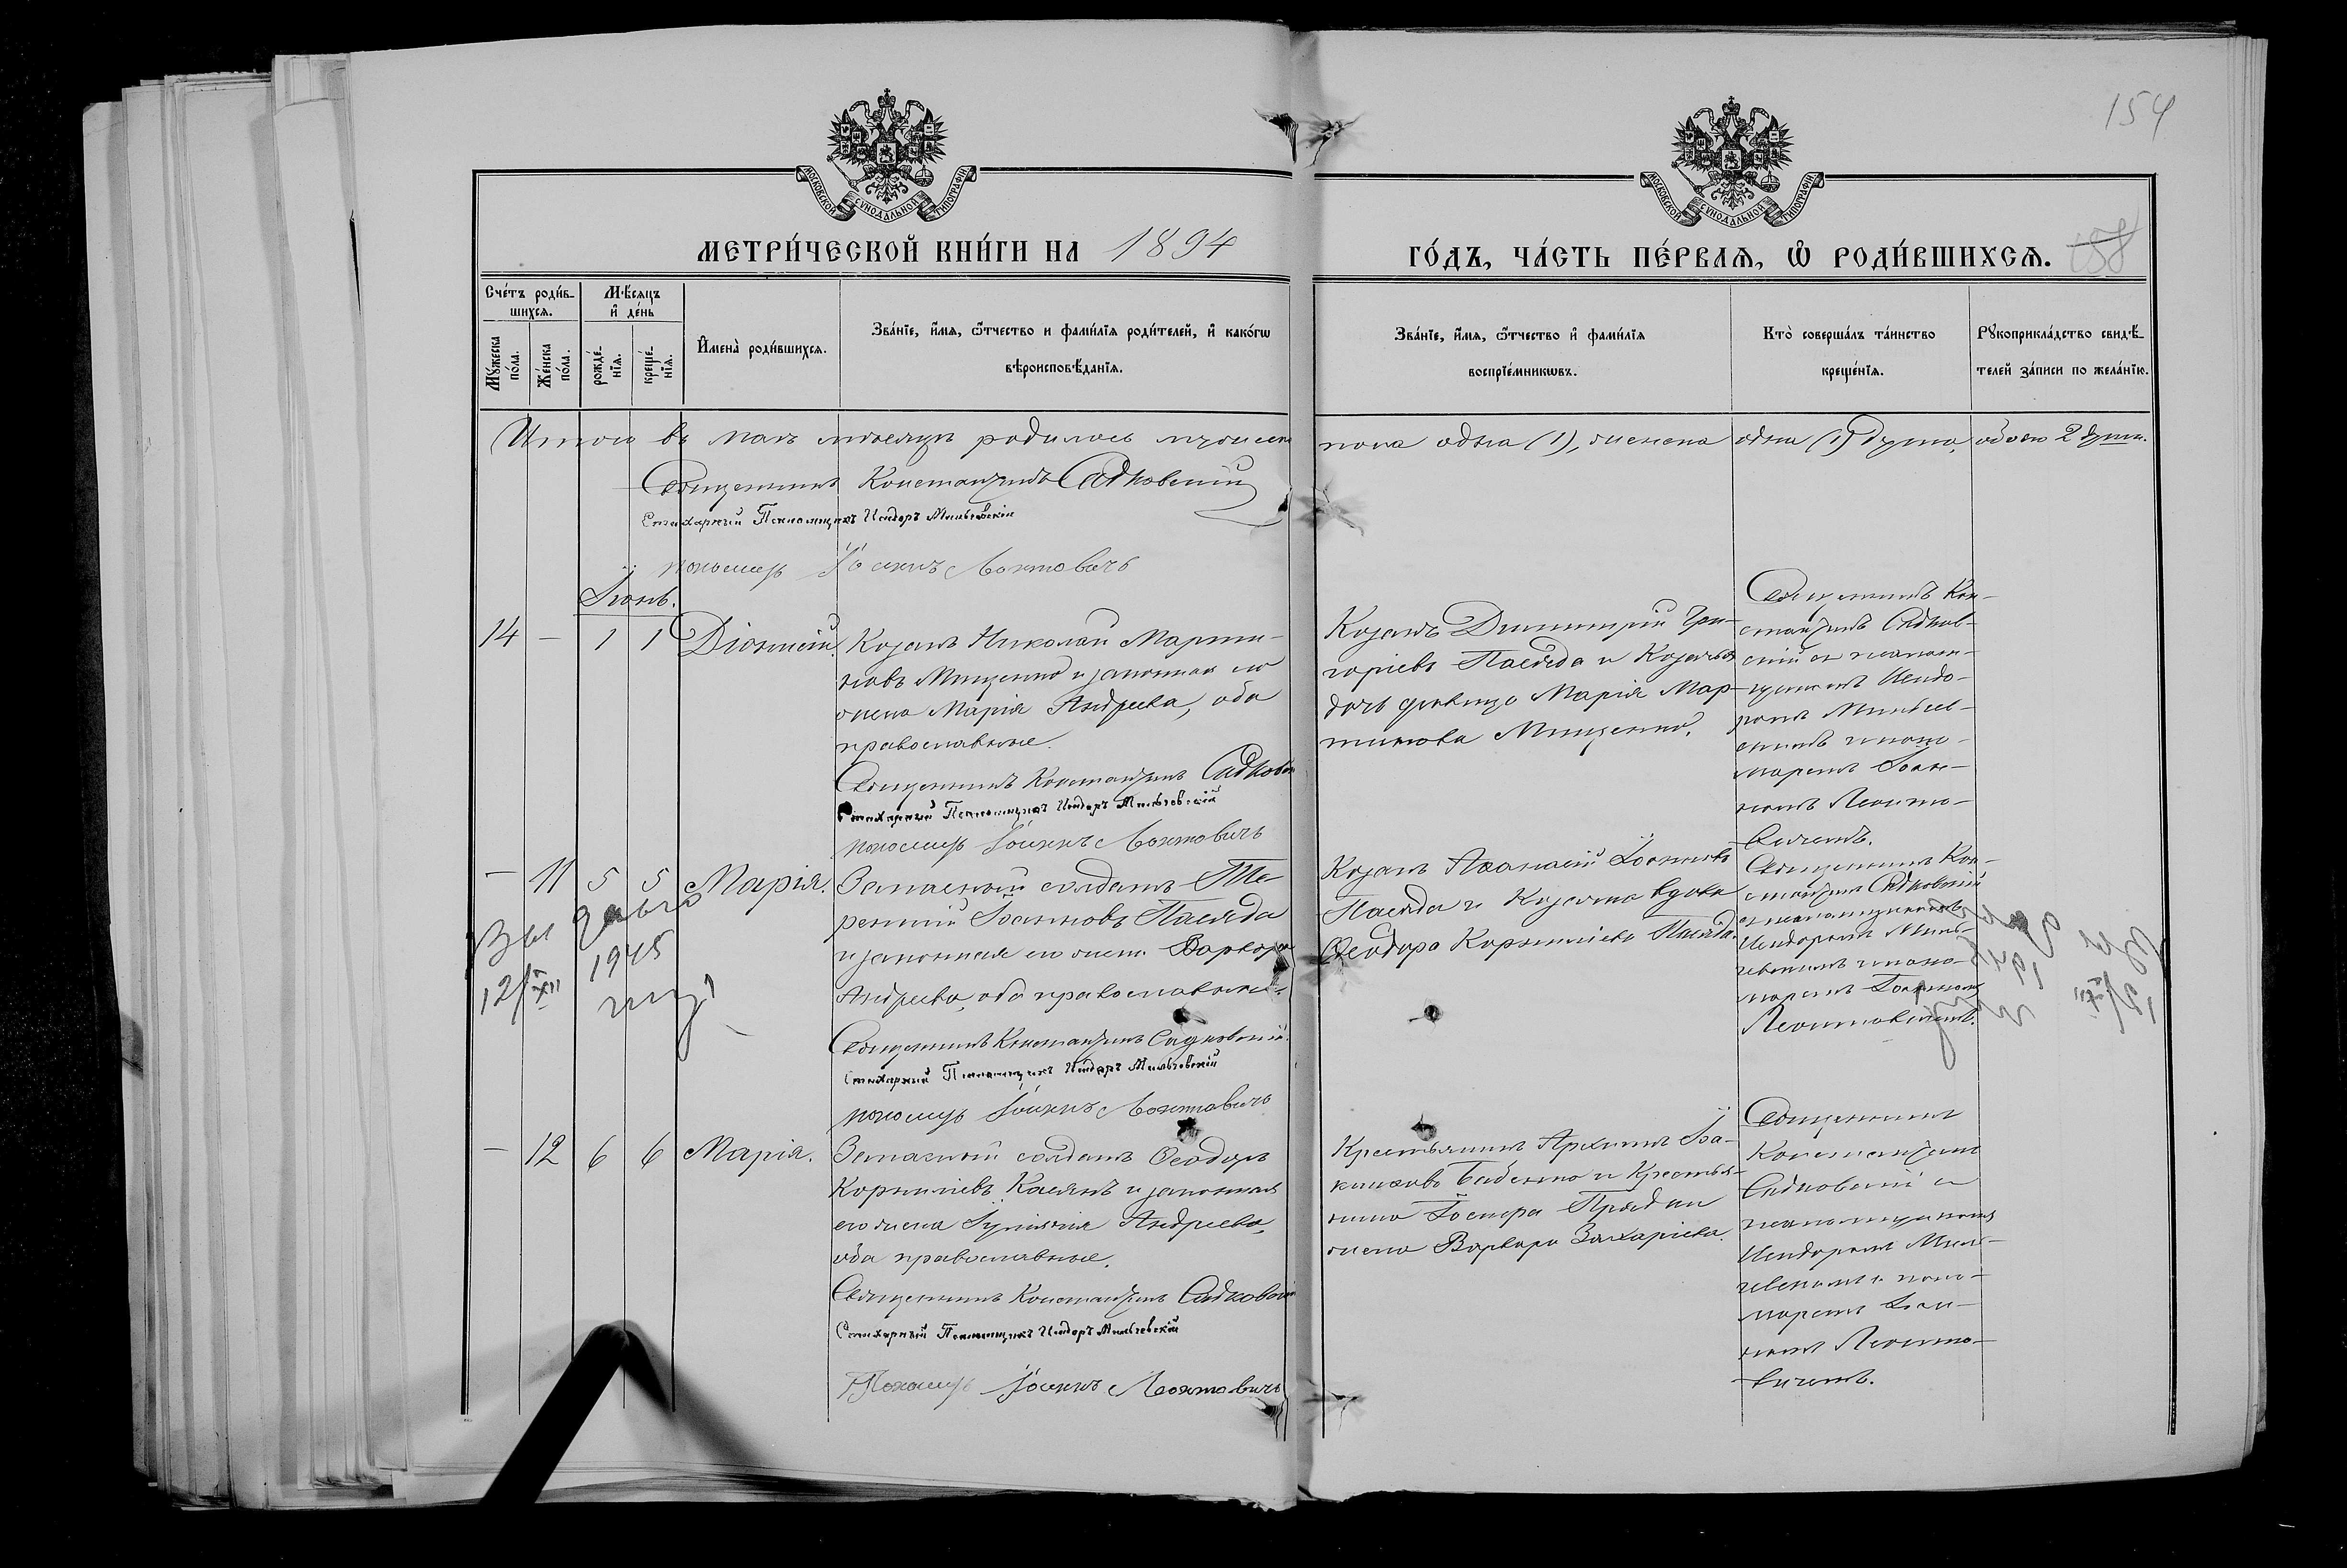 154
МОСКОВСКОЙ СѴНОДАЛЬНОЙ ТИПОГРАФІИ
МОСКОВСКОЙ СѴНОДАЛЬНОЙ ТИПОГРАФІИ
МЕТРИ́ЧЕСКОЙ КНИ́ГИ НА 1894
ГО́ДЪ, ЧА́СТЬ ПЕ́РВАѦ, Ѡ҆ РОДИ́ВШИХСѦ. 158
Сче́тъ роди́в-
шихсѧ.
Мꙋ́жеска по́ла.
Же́нска по́ла.
Мѣ́сѧцъ
и҆ де́нь
рожде́-
нїѧ.
креще́-
нїѧ.
И҆мена̀ роди́вшихсѧ.
Зва́нїе, и҆́мѧ, ѻ҆́тчество и фами́лїѧ роди́телей, и҆ како́гѡ
вѣроисповѣ́данїѧ.
Зва́нїе, и҆́мѧ, ѻ҆́тчество и҆ фами́лїѧ
воспрїе́мникѡвъ.
Кто̀ соверша́лъ та́инство
креще́нїѧ.
Рꙋкоприкла́дство свидѣ́-
телей за́писи по жела́нїю.
Итого въ маѣ мѣсяцѣ родилось мужеска
пола одна (1), женска одна (1) душа, обоего 2 души.
Священникъ Константинъ Садковскій
Стихарный Псаломщикъ Исидоръ Мильчевскій
пономарь Іоаннъ Леонтовичъ
Іюнь.
14 — 1 1 Діонисій.
Козакъ Николай Марти-
новъ Мищенко и законная его
жена Марія Андреева, оба
православные.
Священникъ Константинъ Садковскій
Стихарный Псаломщикъ Исидоръ Мильчевскій
пономарь Іоаннъ Леонтовичъ
Козакъ Димитрій Гри-
горіевъ Пасяда и Козачья
дочь дѣвица Марія Мар-
тинова Мищенко.
Священникъ Кон-
стантинъ Садков-
скій съ псалом-
щикомъ Исидо-
ромъ Мильчев-
скимъ и поно-
маремъ Іоан-
номъ Леонто-
вичемъ.
— 11 5 5 Марія.
Запасный солдатъ Те-
рентій Іоанновъ Пасяда
и законная его жена Варвара
Андреева, оба православные.
Священникъ Константинъ Садковскій
Стихарный Псаломщикъ Исидоръ Мильчевскій
пономарь Іоаннъ Леонтовичъ
Козакъ Аѳанасій Іоанновъ
Пасяда и Козачка вдова
Ѳеодора Корниліева Пасяда.
Священникъ Кон-
стантинъ Садковскій
съ псаломщикомъ
Исидоромъ Миль-
чевскимъ и поно-
маремъ Іоанномъ
Леонтовичемъ.
12/XII 1945
— 12 6 6 Марія.
Запасный солдатъ Ѳеодоръ
Корниліевъ Касянъ и законная
его жена Андреева,
оба православные.
Священникъ Константинъ Садковскій
Стихарный Псаломщикъ Исидоръ Мильчевскій
Пономарь Іоаннъ Леонтовичъ
Крестьянинъ Архипъ Іоа-
нниковъ Бабенко и Крестьян-
жена Варвара Захаріева.
Священникъ
Константинъ
Садковскій съ
псаломщикомъ
Исидоромъ Миль-
чевскимъ и поно-
маремъ Іоан-
номъ Леонто-
вичемъ.